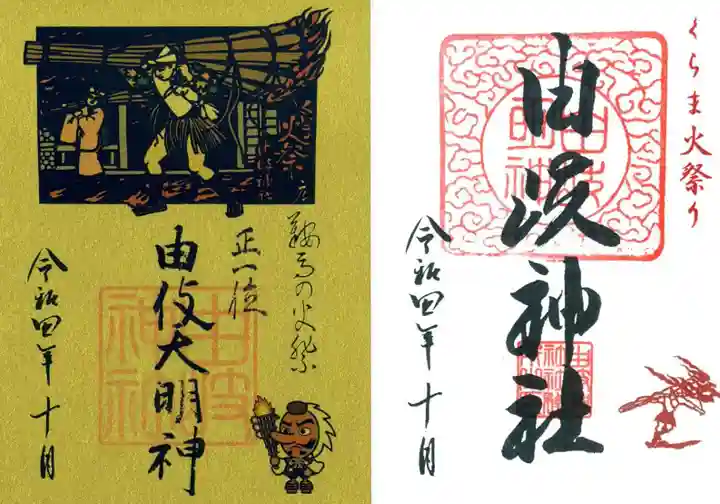 鞍馬の火祭
正一位
由伎大明神
令和四年十月
くらま火祭り
由岐神社
令和四年十月